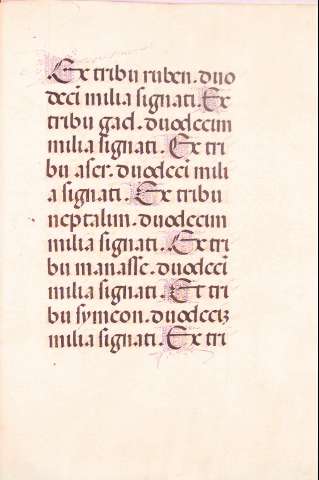 Ex tribu ruben. duo
decī milia signati. Ex
tribu gad. duodecim
milia signati. Ex tri
bu aser. duodeci mili
a signati. Ex tribu
neptalim. duodecim
milia signati. Ex tri
bu manasse. duodeci
milia signati. Et tri
bu symeon. duodeciȝ
milia signati. Ex tri